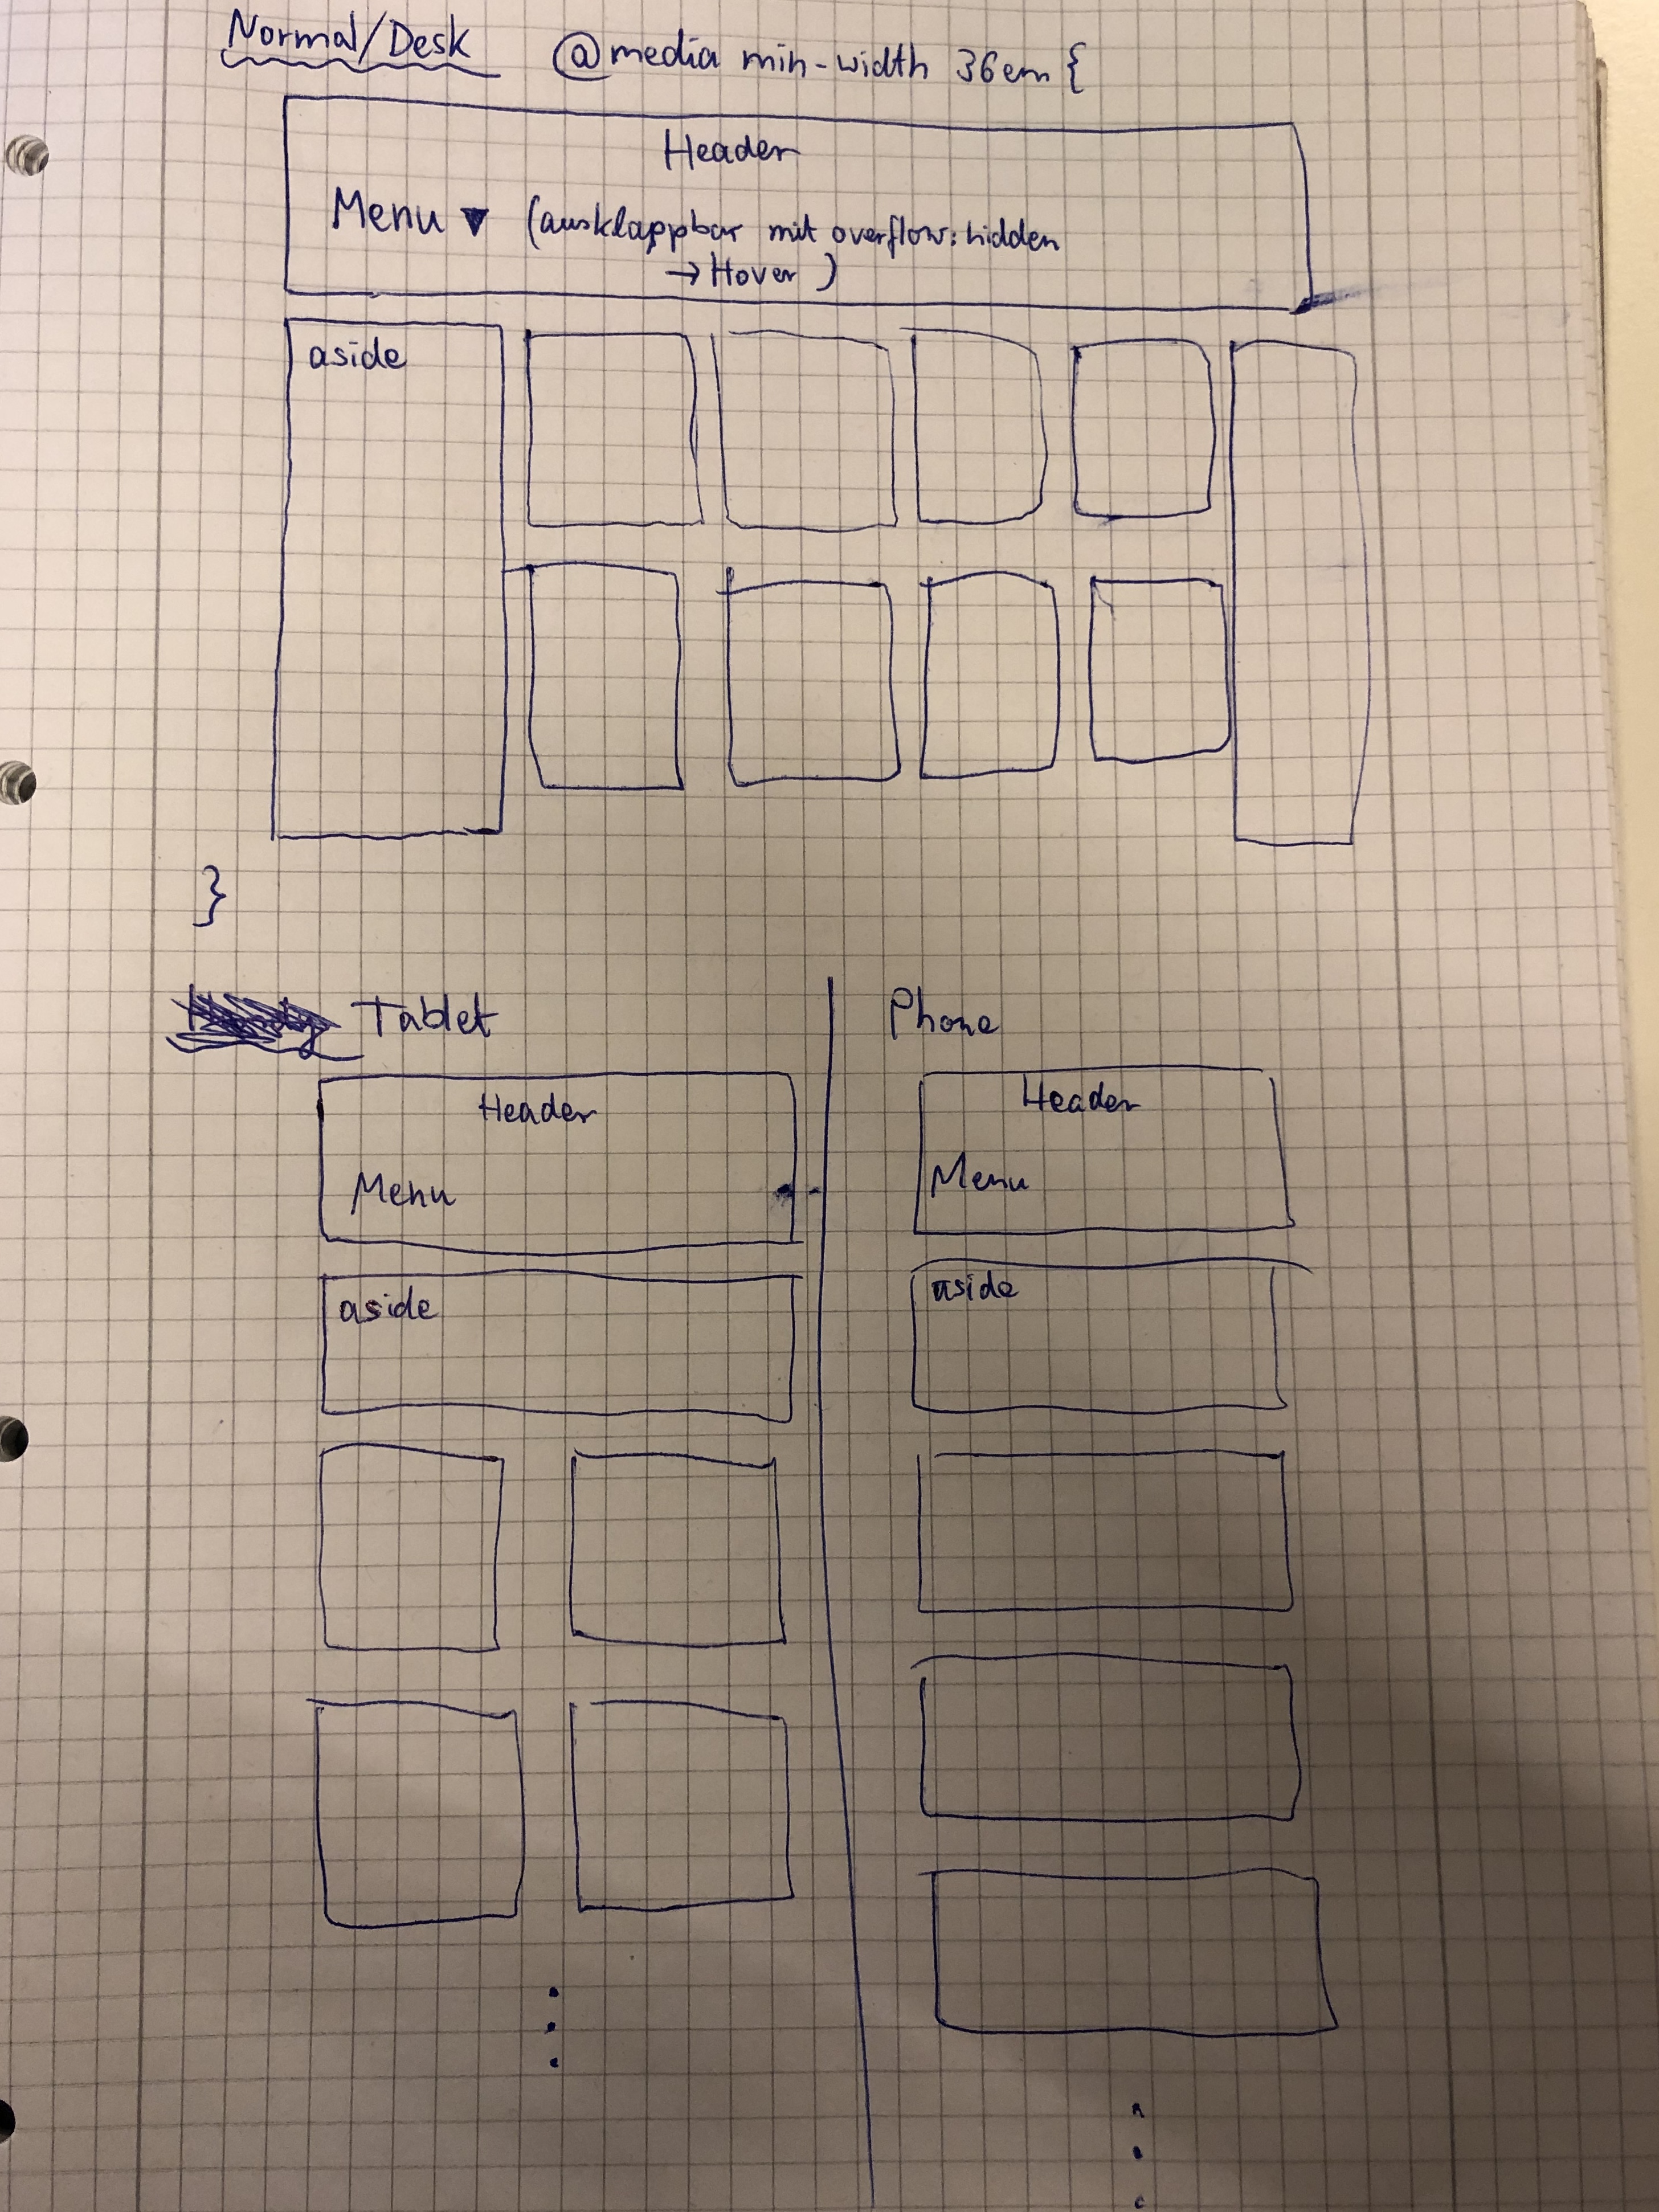 Normal/Desk @media min-width 36em {
Header
Menu ▼ (ausklappbar mit overflow: hidden
→ Hover )
aside
}
Tablet
Header
Menu
aside
Phone
Header
Menu
aside